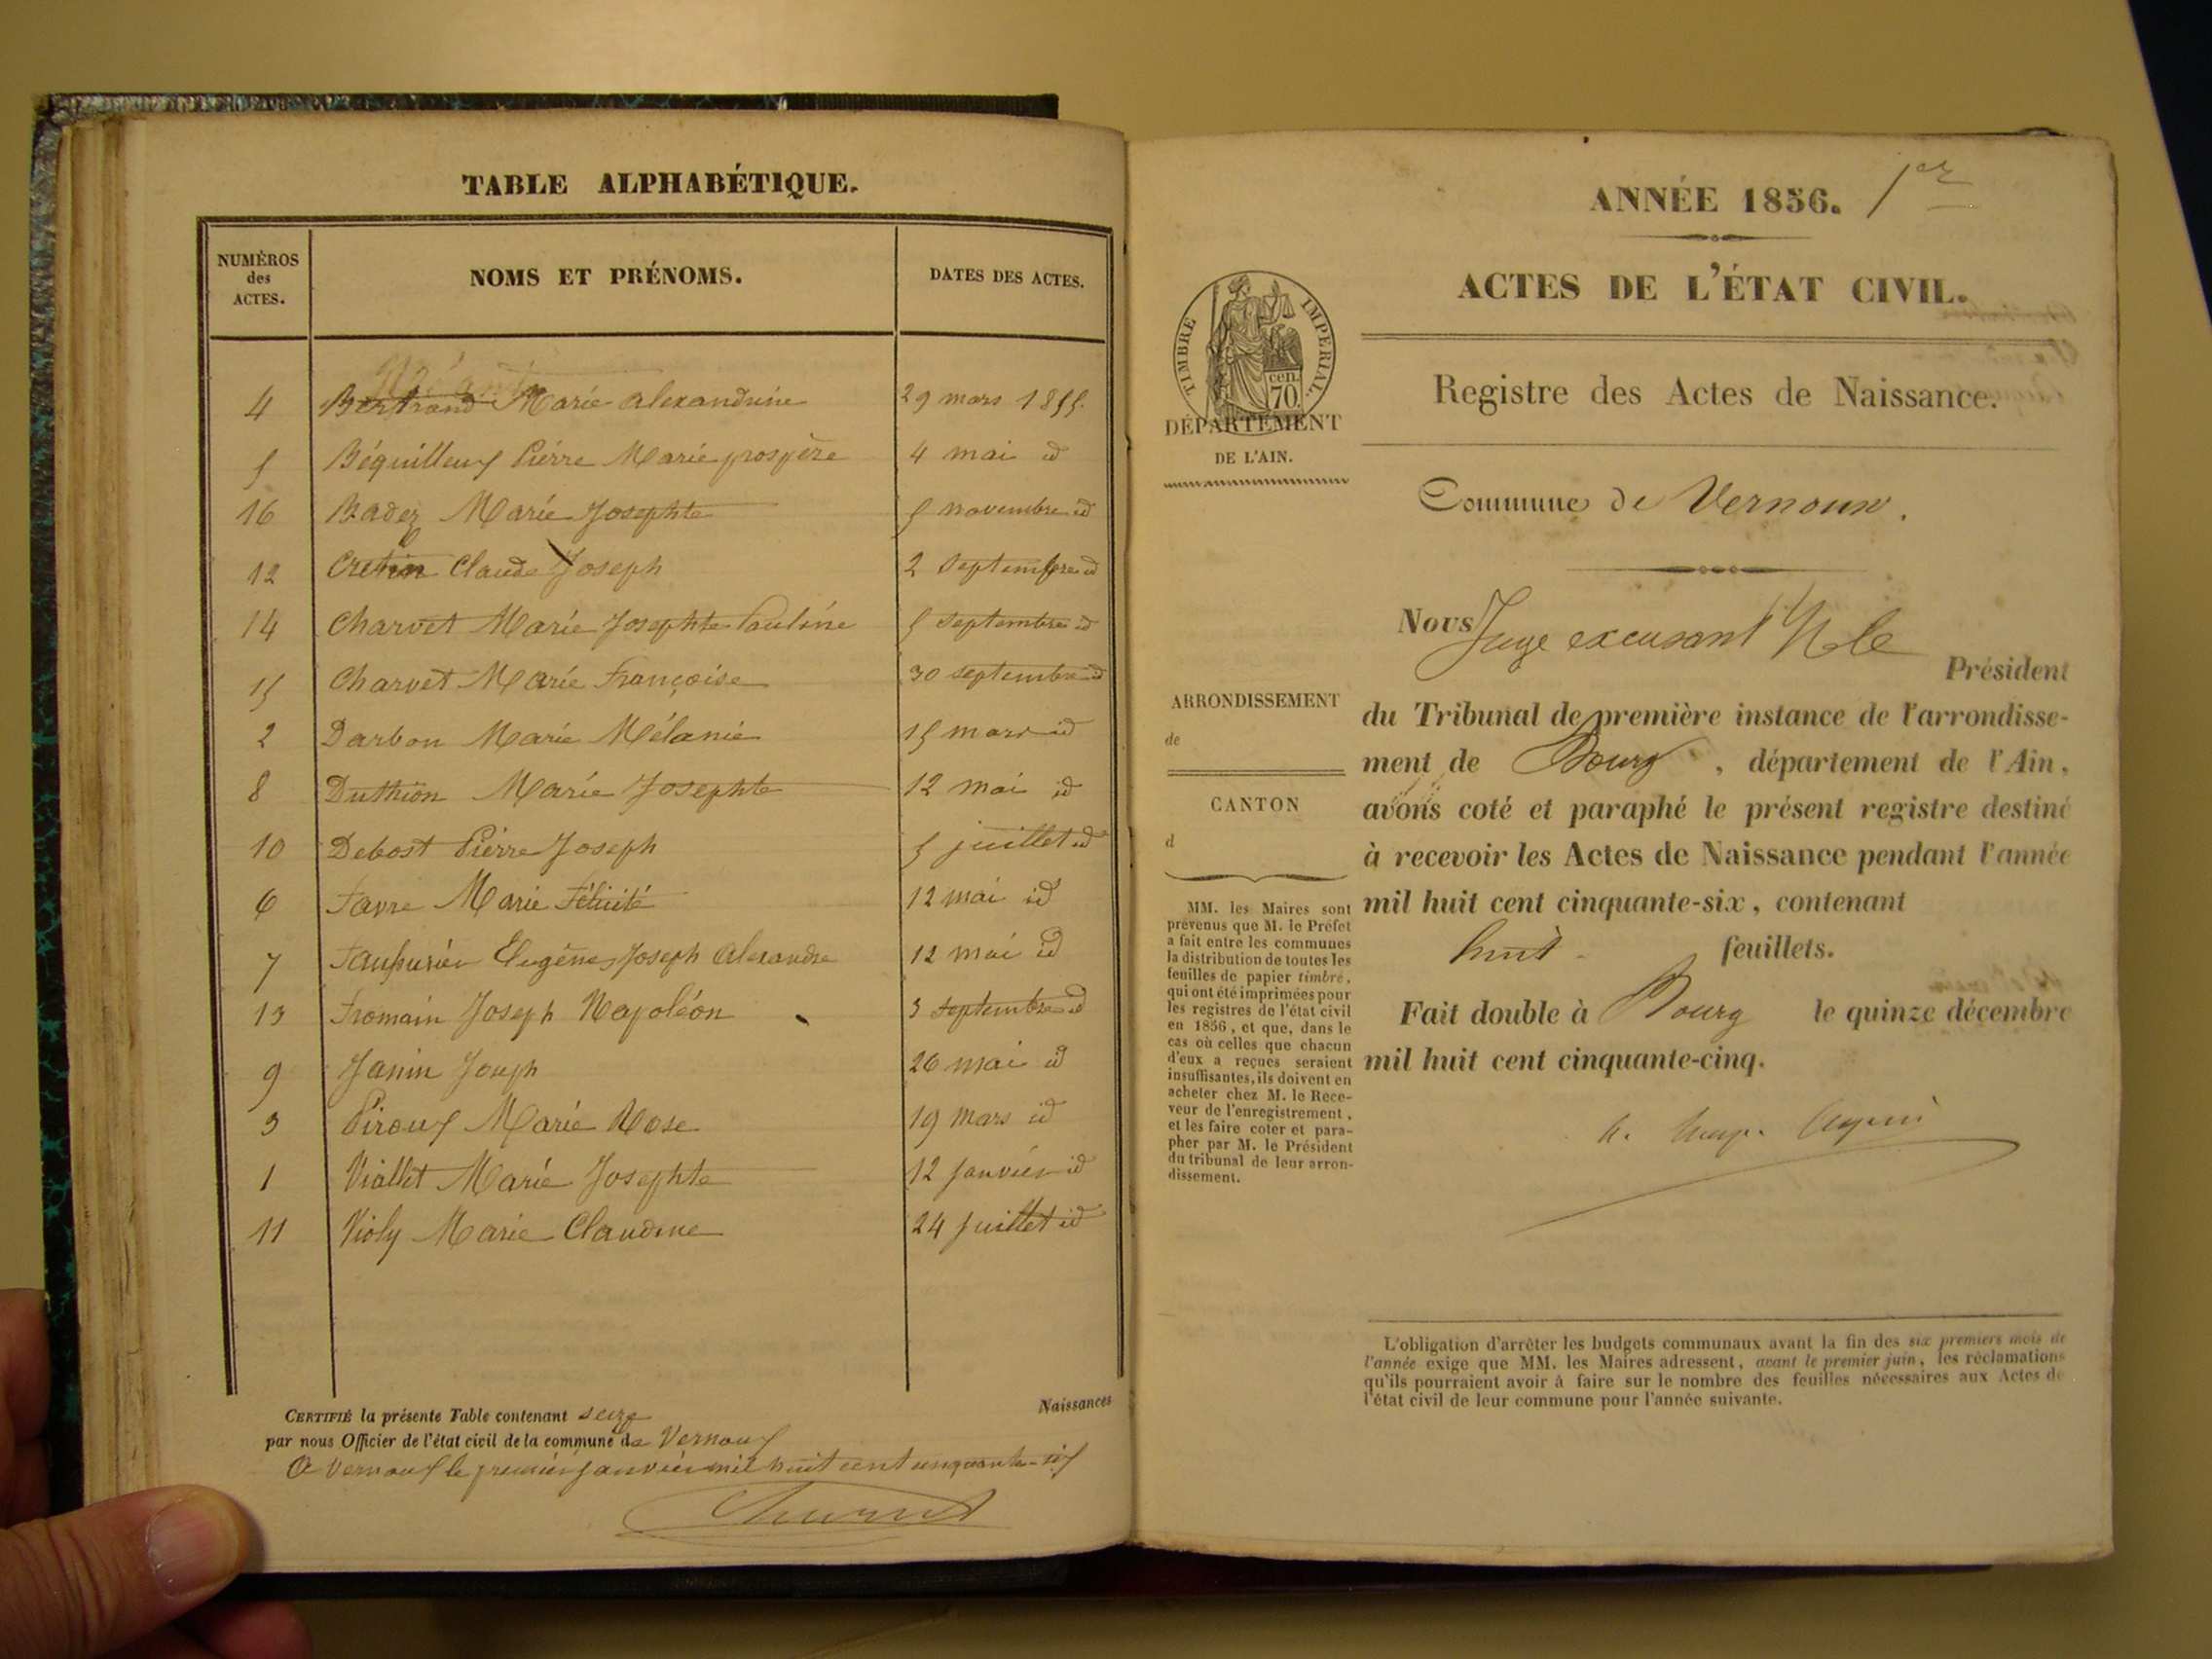 TABLE ALPHABÉTIQUE.
NUMÉROS des ACTES. NOMS ET PRÉNOMS. DATES DES ACTES.
4 Bertrand Marie alexandrine 29 mars 1855.
5 Béquilleux Pierre Marie prospère 4 mai id
16 Badez Marie Josephte 5 novembre id
12 Cretin Claude Joseph 2 septembre id
14 Charvet Marie Josephte Pauline 5 septembre id
15 Charvet Marie Françoise 30 septembre id
2 Darbon Marie Mélanie 15 mars id
8 Duthion Marie Josephte 12 mai id
10 Debost Pierre Joseph 5 juillet id
6 Favre Marie Félicité 12 mai id
7 Eugène Joseph alexandre 12 mai id
13 Fromain Joseph Napoléon 3 septembre id
9 Janin Joseph 26 mai id
3 Piroux Marie Rose 19 mars id
1 Viallet Marie Josephte 12 janvier id
11 Violy Marie Claudine 24 juillet id
CERTIFIÉ la présente Table contenant seize Naissances
par nous Officier de l'état civil de la commune de Vernoux
A Vernoux le premier janvier mil huit cent cinquante-six
ANNÉE 1856. 1er
ACTES DE L'ÉTAT CIVIL.
TIMBRE IMPERIAL.
cen. 70.
Registre des Actes de Naissance.
DÉPARTEMENT
DE L'AIN.
Commune de Vernoux.
Nous Juge excusant M le Président
ARRONDISSEMENT
de
CANTON
d
du Tribunal de première instance de l'arrondisse-
ment de Bourg, département de l'Ain,
avons coté et paraphé le présent registre destiné
à recevoir les Actes de Naissance pendant l'année
mil huit cent cinquante-six, contenant
huit feuillets.
Fait double à Bourg le quinze décembre
mil huit cent cinquante-cinq.
MM. les Maires sont
prévenus que M. le Préfet
a fait entre les communes
la distribution de toutes les
feuilles de papier timbré,
qui ont été imprimées pour
les registres de l'état civil
en 1856, et que, dans le
cas où celles que chacun
d'eux a reçues seraient
insuffisantes, ils doivent en
acheter chez M. le Rece-
veur de l'enregistrement,
et les faire coter et para-
pher par M. le Président
du tribunal de leur arron-
dissement.
L'obligation d'arrêter les budgets communaux avant la fin des six premiers mois de
l'année exige que MM. les Maires adressent, avant le premier juin, les réclamations
qu'ils pourraient avoir à faire sur le nombre des feuilles nécessaires aux Actes de
l'état civil de leur commune pour l'année suivante.